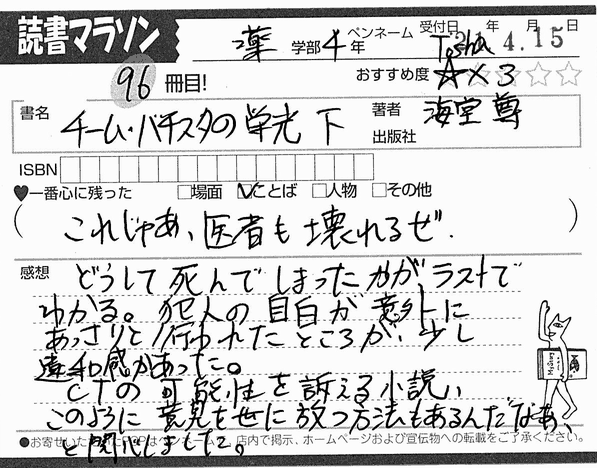 読書マラソン
薬 学部 4 年 ペンネーム Tosha 受付日 年 月 日 4.15
96 冊目!
おすすめ度 ☆×3 ☆☆☆
書名 チーム・バチスタの栄光 下
著者 海堂 尊
出版社
ISBN
♥一番心に残った □場面 ☑ことば □人物 □その他
(これじゃあ、医者も壊れるぜ.)
感想 どうして死んでしまったのかが、ラストで
わかる。犯人の自白が意外に
あっさりと行われたところが、少し
違和感があった。
CTの可能性を訴える小説、
このように意見を世に放つ方法もあるんだなあ、
と関心しました。
●お寄せいた はペンネームで、店内で掲示、ホームページおよび宣伝物への転載をご了承ください。